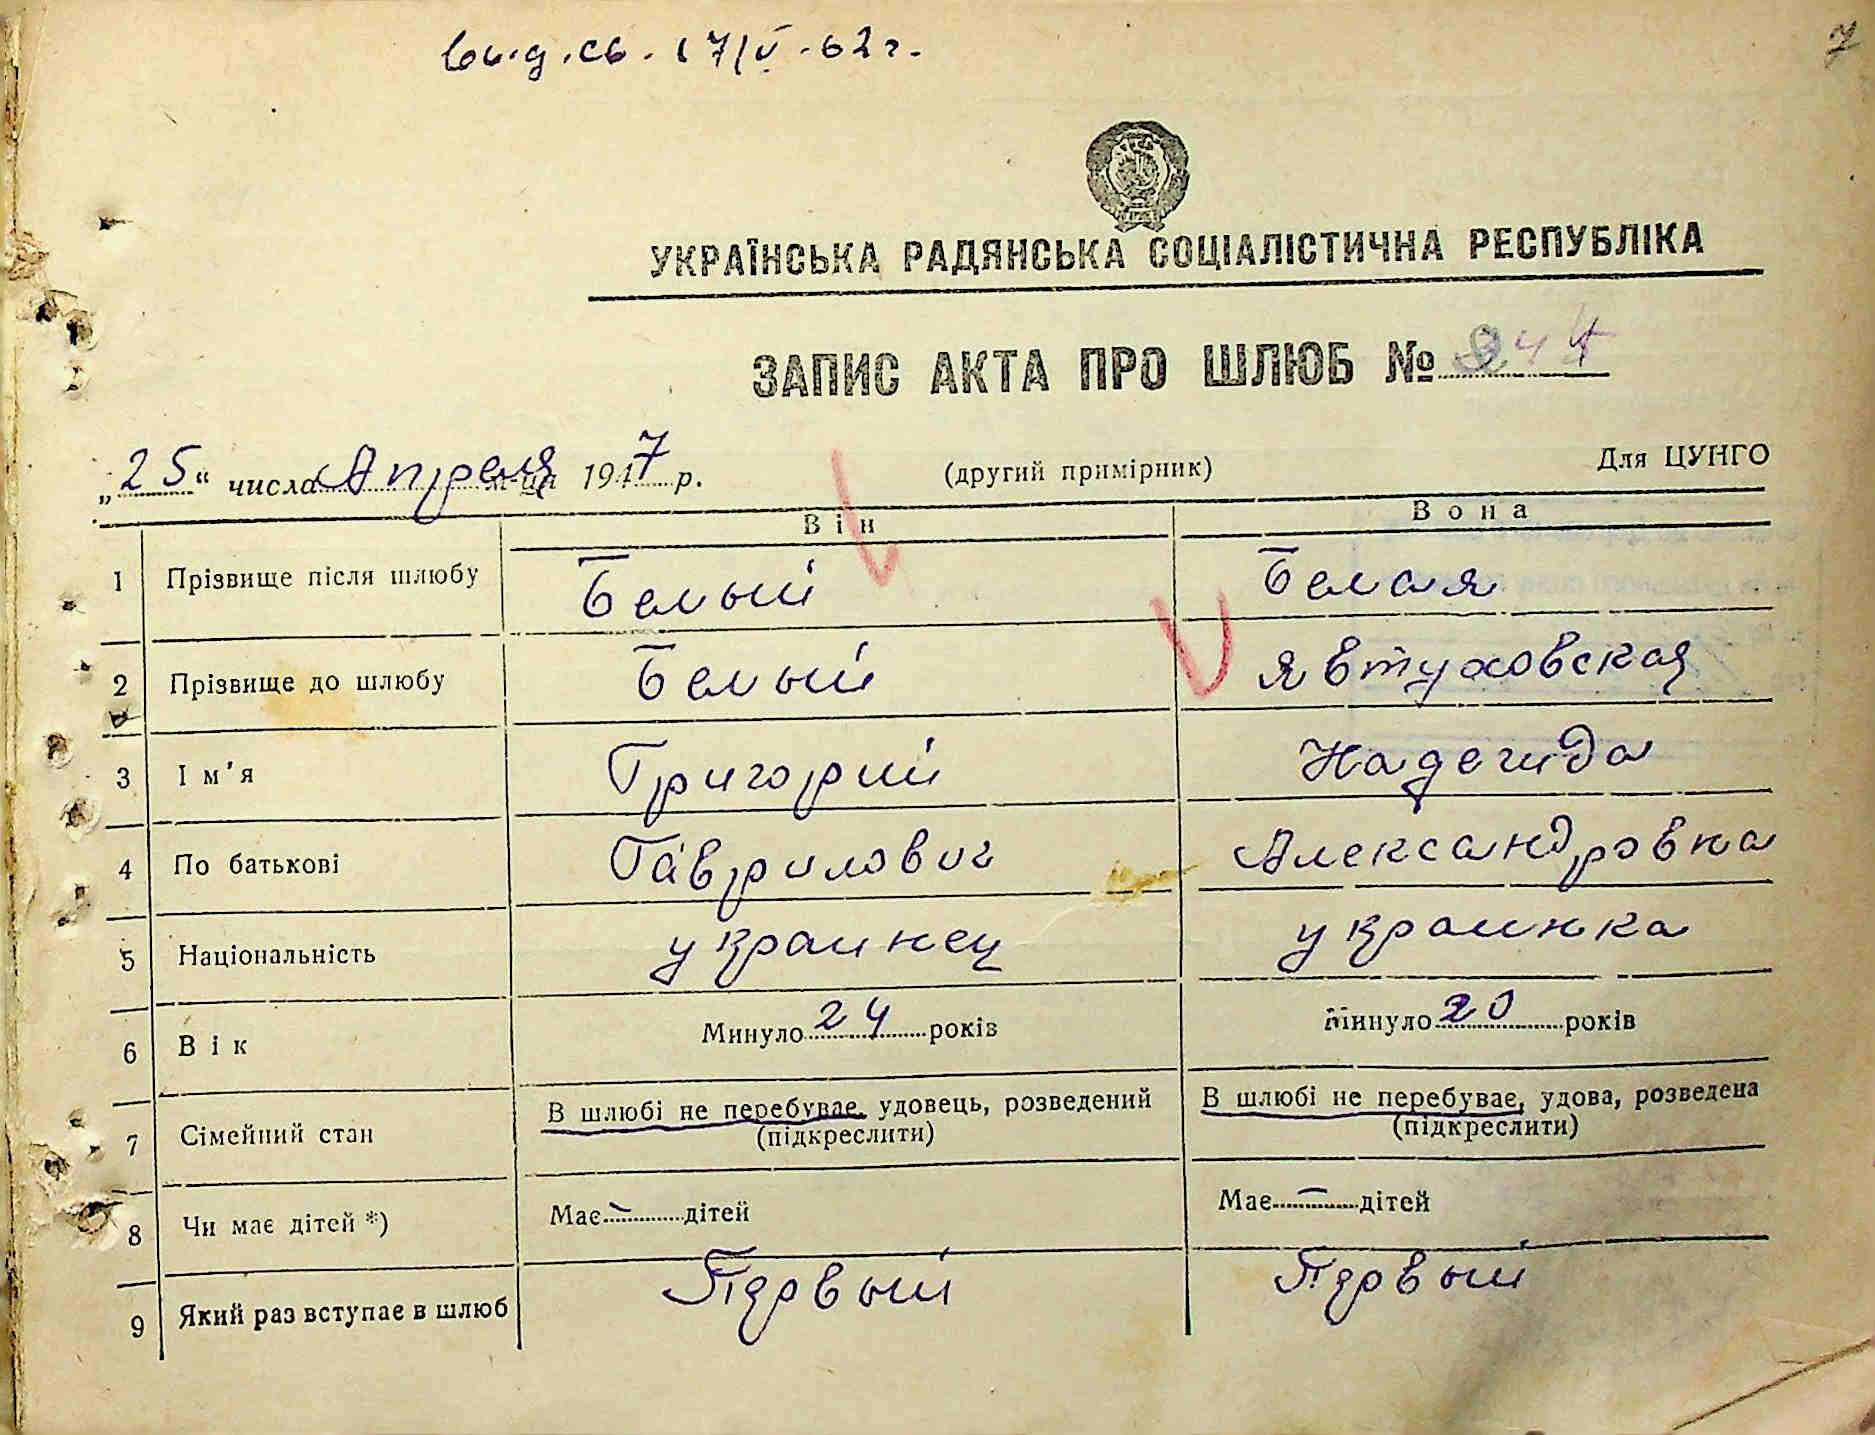 выд. св. 17/V-62 г.
7
УКРАЇНСЬКА РАДЯНСЬКА СОЦІАЛІСТИЧНА РЕСПУБЛІКА
ЗАПИС АКТА ПРО ШЛЮБ №
„25“ числа Апреля м-ця 1947 р. (другий примірник) Для ЦУНГО
Він Вона
1 Прізвище після шлюбу Белый Белая
2 Прізвище до шлюбу Белый Явтуховская
3 Ім'я Григорий Надежда
4 По батькові Гаврилович Александровна
5 Національність украинец украинка
6 Вік Минуло 24 років Минуло 20 років
7 Сімейний стан В шлюбі не перебуває, удовець, розведений (підкреслити) В шлюбі не перебуває, удова, розведена (підкреслити)
8 Чи має дітей *) Має — дітей Має — дітей
9 Який раз вступає в шлюб Первый Первый